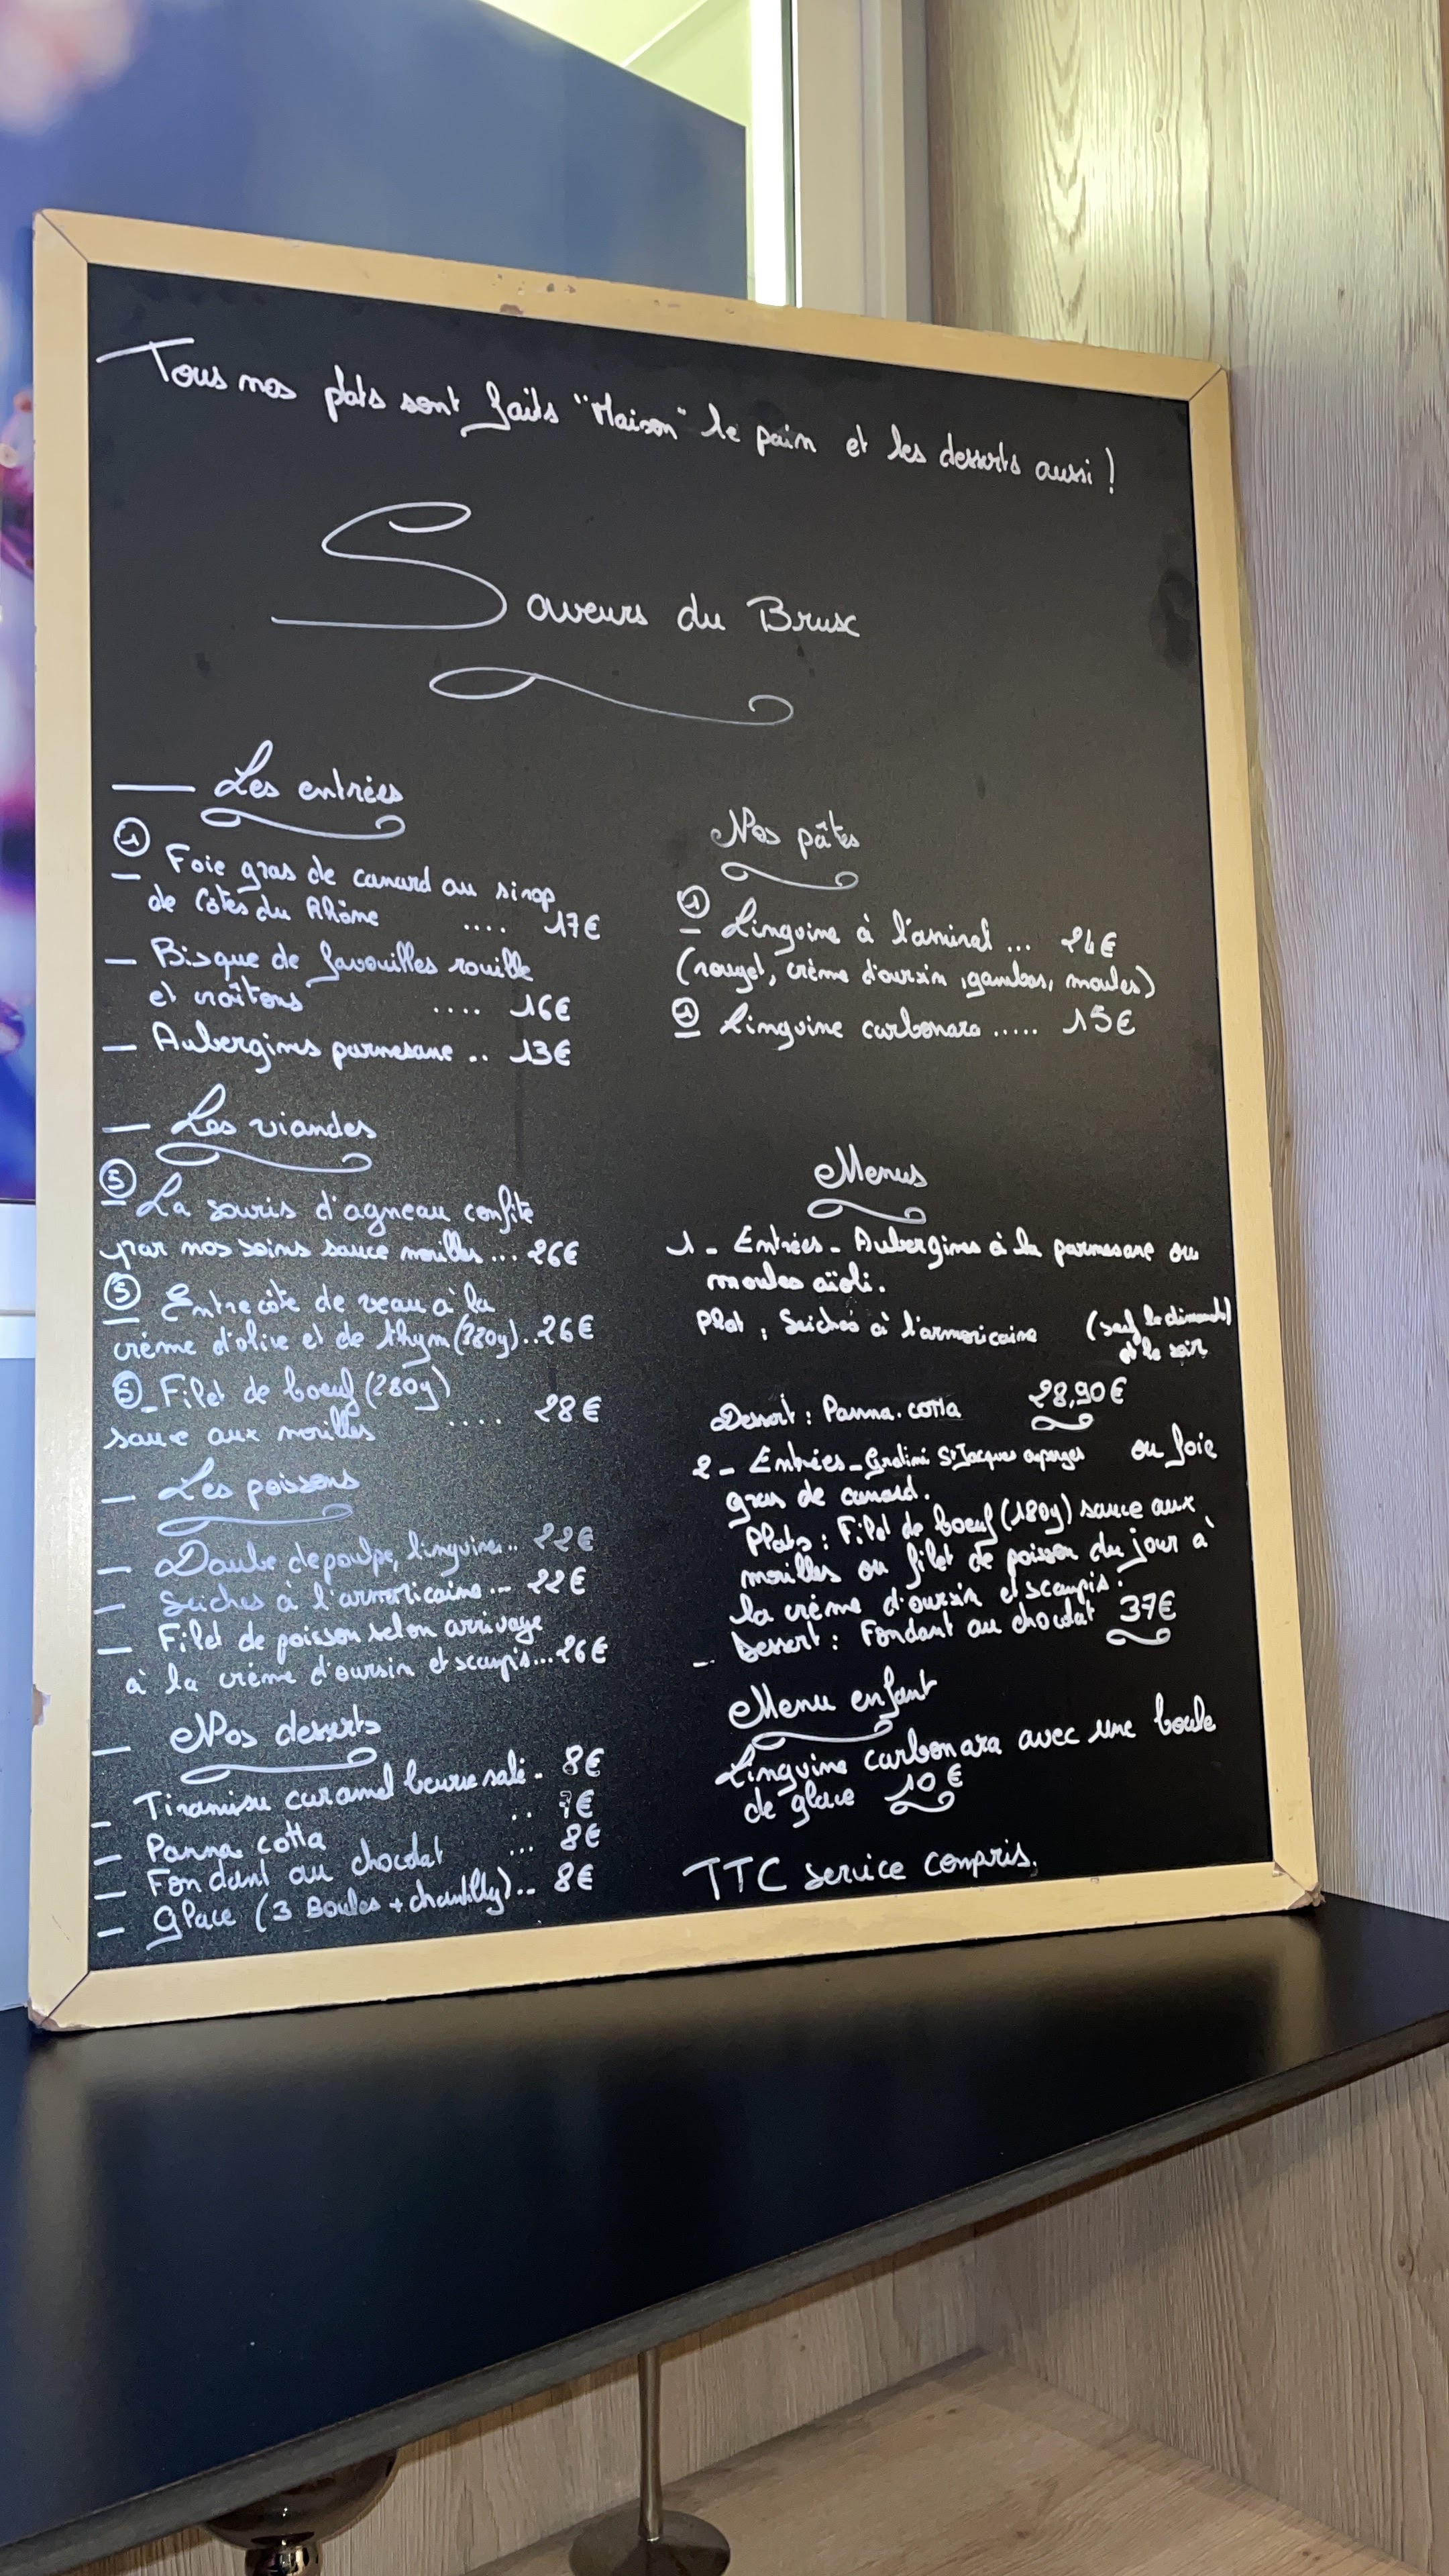 Tous nos plats sont faits "Maison" le pain et les desserts aussi !
Saveurs du Brusc
— Les entrées
①
— Foie gras de canard au sirop
de Côtes du Rhône .... 17€
— Bisque de favouilles rouille
et croûtons .... 16€
— Aubergines parmesane .. 13€
— Les viandes
⑤
— La souris d'agneau confite
par nos soins sauce morilles... 26€
⑤
— Entrecôte de veau à la
crème d'olive et de thym (320g).. 26€
⑤ - Filet de boeuf (280g)
sauce aux morilles .... 28€
— Les poissons
— Daube de poulpe, linguine.. 22€
— Seiches à l'armoricaine... 22€
— Filet de poisson selon arrivage
à la crème d'oursin et scampis... 26€
— Nos desserts
— Tiramisu caramel beurre salé.. 8€
— Panna cotta .. 7€
— Fondant au chocolat ... 8€
— Glace (3 Boules + chantilly)... 8€
Nos pâtes
①
— Linguine à l'amiral ... 24€
(rouget, crème d'oursin, gambas, moules)
①
— Linguine carbonara ..... 15€
Menus
1 - Entrées - Aubergines à la parmesane ou
moules aïoli.
Plat : Seiches à l'armoricaine (sauf le dimanche
et le soir
Dessert : Panna. cotta 28,90€
2 - Entrées - Gratiné St Jacques asperges ou foie
gras de canard.
Plats : Filet de boeuf (180g) sauce aux
morilles ou filet de poisson du jour à
la crème d'oursin et scampis.
- Dessert : Fondant au chocolat 37€
Menu enfant
Linguine carbonara avec une boule
de glace 10€
TTC service compris.